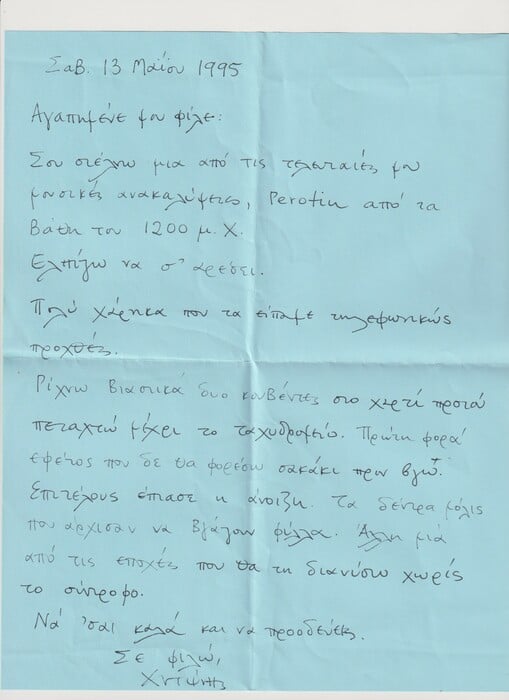 Σαβ. 13 Μαΐου 1995
Αγαπημένε μου φίλε:
Σου στέλνω μια από τις τελευταίές μου
μουσικές ανακαλύψεις, Perotin από τα
βάθη του 1200 μ. Χ.
Ελπίζω να σ' αρέσει.
Πολύ χάρηκα που τα είπαμε τηλεφωνικώς
προχθές.
Ρίχνω βιαστικά δυο κουβέντες στο χαρτί προτού
πεταχτώ μέχρι το ταχυδρομείο. Πρώτη φορά
εφέτος που δε θα φορέσω σακάκι πριν βγω.
Επιτέλους έπιασε η άνοιξη. Τα δέντρα μόλις
που άρχισαν να βγάζουν φύλλα. Άλλη μιά
από τις εποχές που θα τη διανύσω χωρίς
το σύντροφο.
Νά 'σαι καλά και να προοδεύεις.
Σε φιλώ,